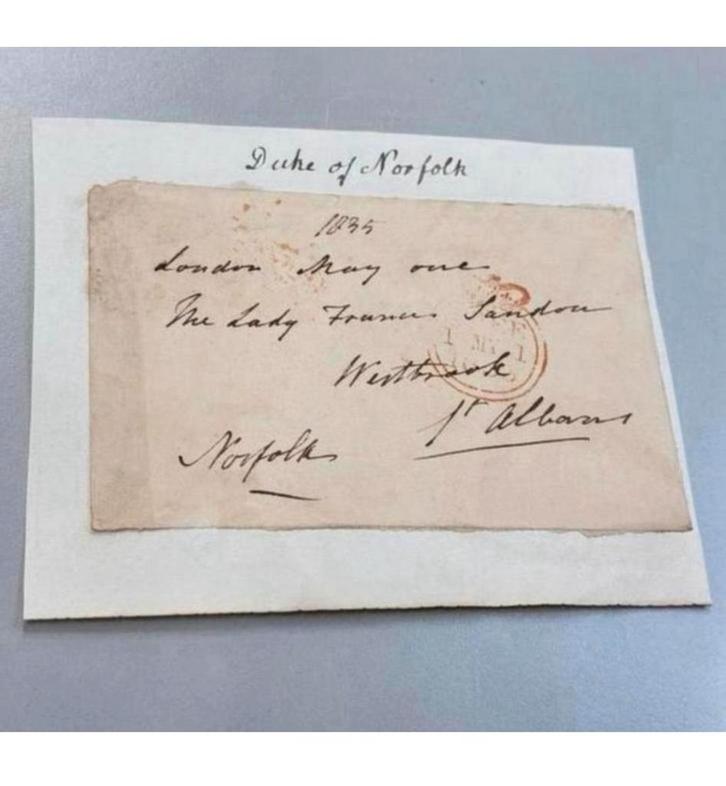 Duke of Norfolk
1835
London May one
The Lady Frances Sandon
Westbrook
St Albans
Norfolk
1 MY 1